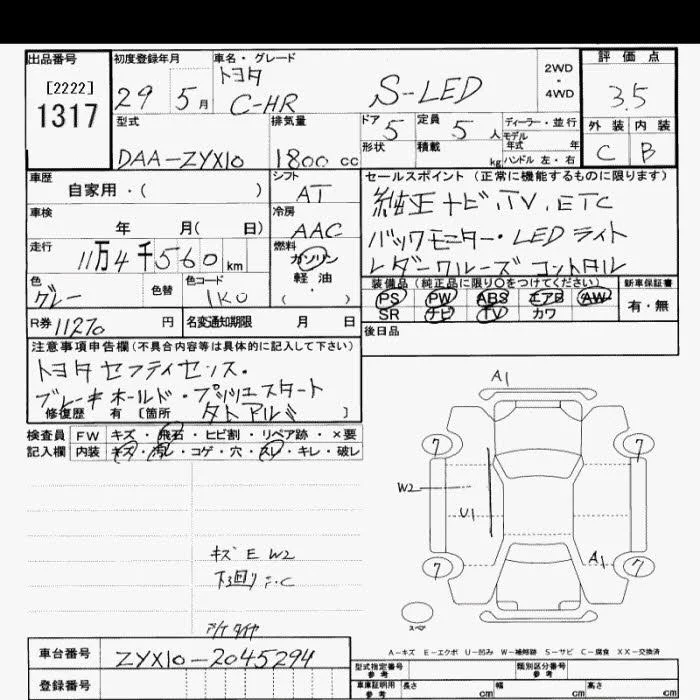 出品番号
[2222]
1317
初度登録年月
29 5月
車名・グレード
トヨタ
C-HR S-LED
2WD
・
4WD
評価点
3.5
外装 内装
C B
型式
DAA-ZYX10
排気量
1800cc
ドア
5
定員
5人
ディーラー・並行
モデル
年式 年
形状
積載 kg
ハンドル 左・右
車歴
自家用・( )
シフト
AT
車検
年 月( 日)
冷房
AAC
走行
11万4千560km
燃料
ガソリン
軽油
( ・ )
色
グレー
色替
色コード
1K0
R券 11270 円
名変通知期限 月 日
セールスポイント(正常に機能するものに限ります)
純正ナビ.TV.ETC
バックモニター・LEDライト
レーダークルーズコントロール
装備品(純正品に限り○をつけてください)
PS PW ABS エアB AW
SR ナビ TV カワ
新車保証書
有・無
後日品
注意事項申告欄(不具合内容等は具体的に記入して下さい)
トヨタセフティセンス・
ブレーキホールド・プッシュスタート
修復歴 有 [箇所 ]
検査員
記入欄
FW キズ・飛石・ヒビ割・リペア跡・×要
内装 キズ・汚レ・コゲ・穴・スレ・キレ・破レ
キズ E W2
下廻り
A1
7 7
W2
U1
A1
7 7
スペア
A-キズ E-エクボ U-凹み W-補修跡 S-サビ C-腐食 XX-交換済
車台番号
ZYX10-2045294
登録番号
型式指定番号
参考
類別区分番号
参考
車庫証明用
参考
長さ cm
幅 cm
高さ cm